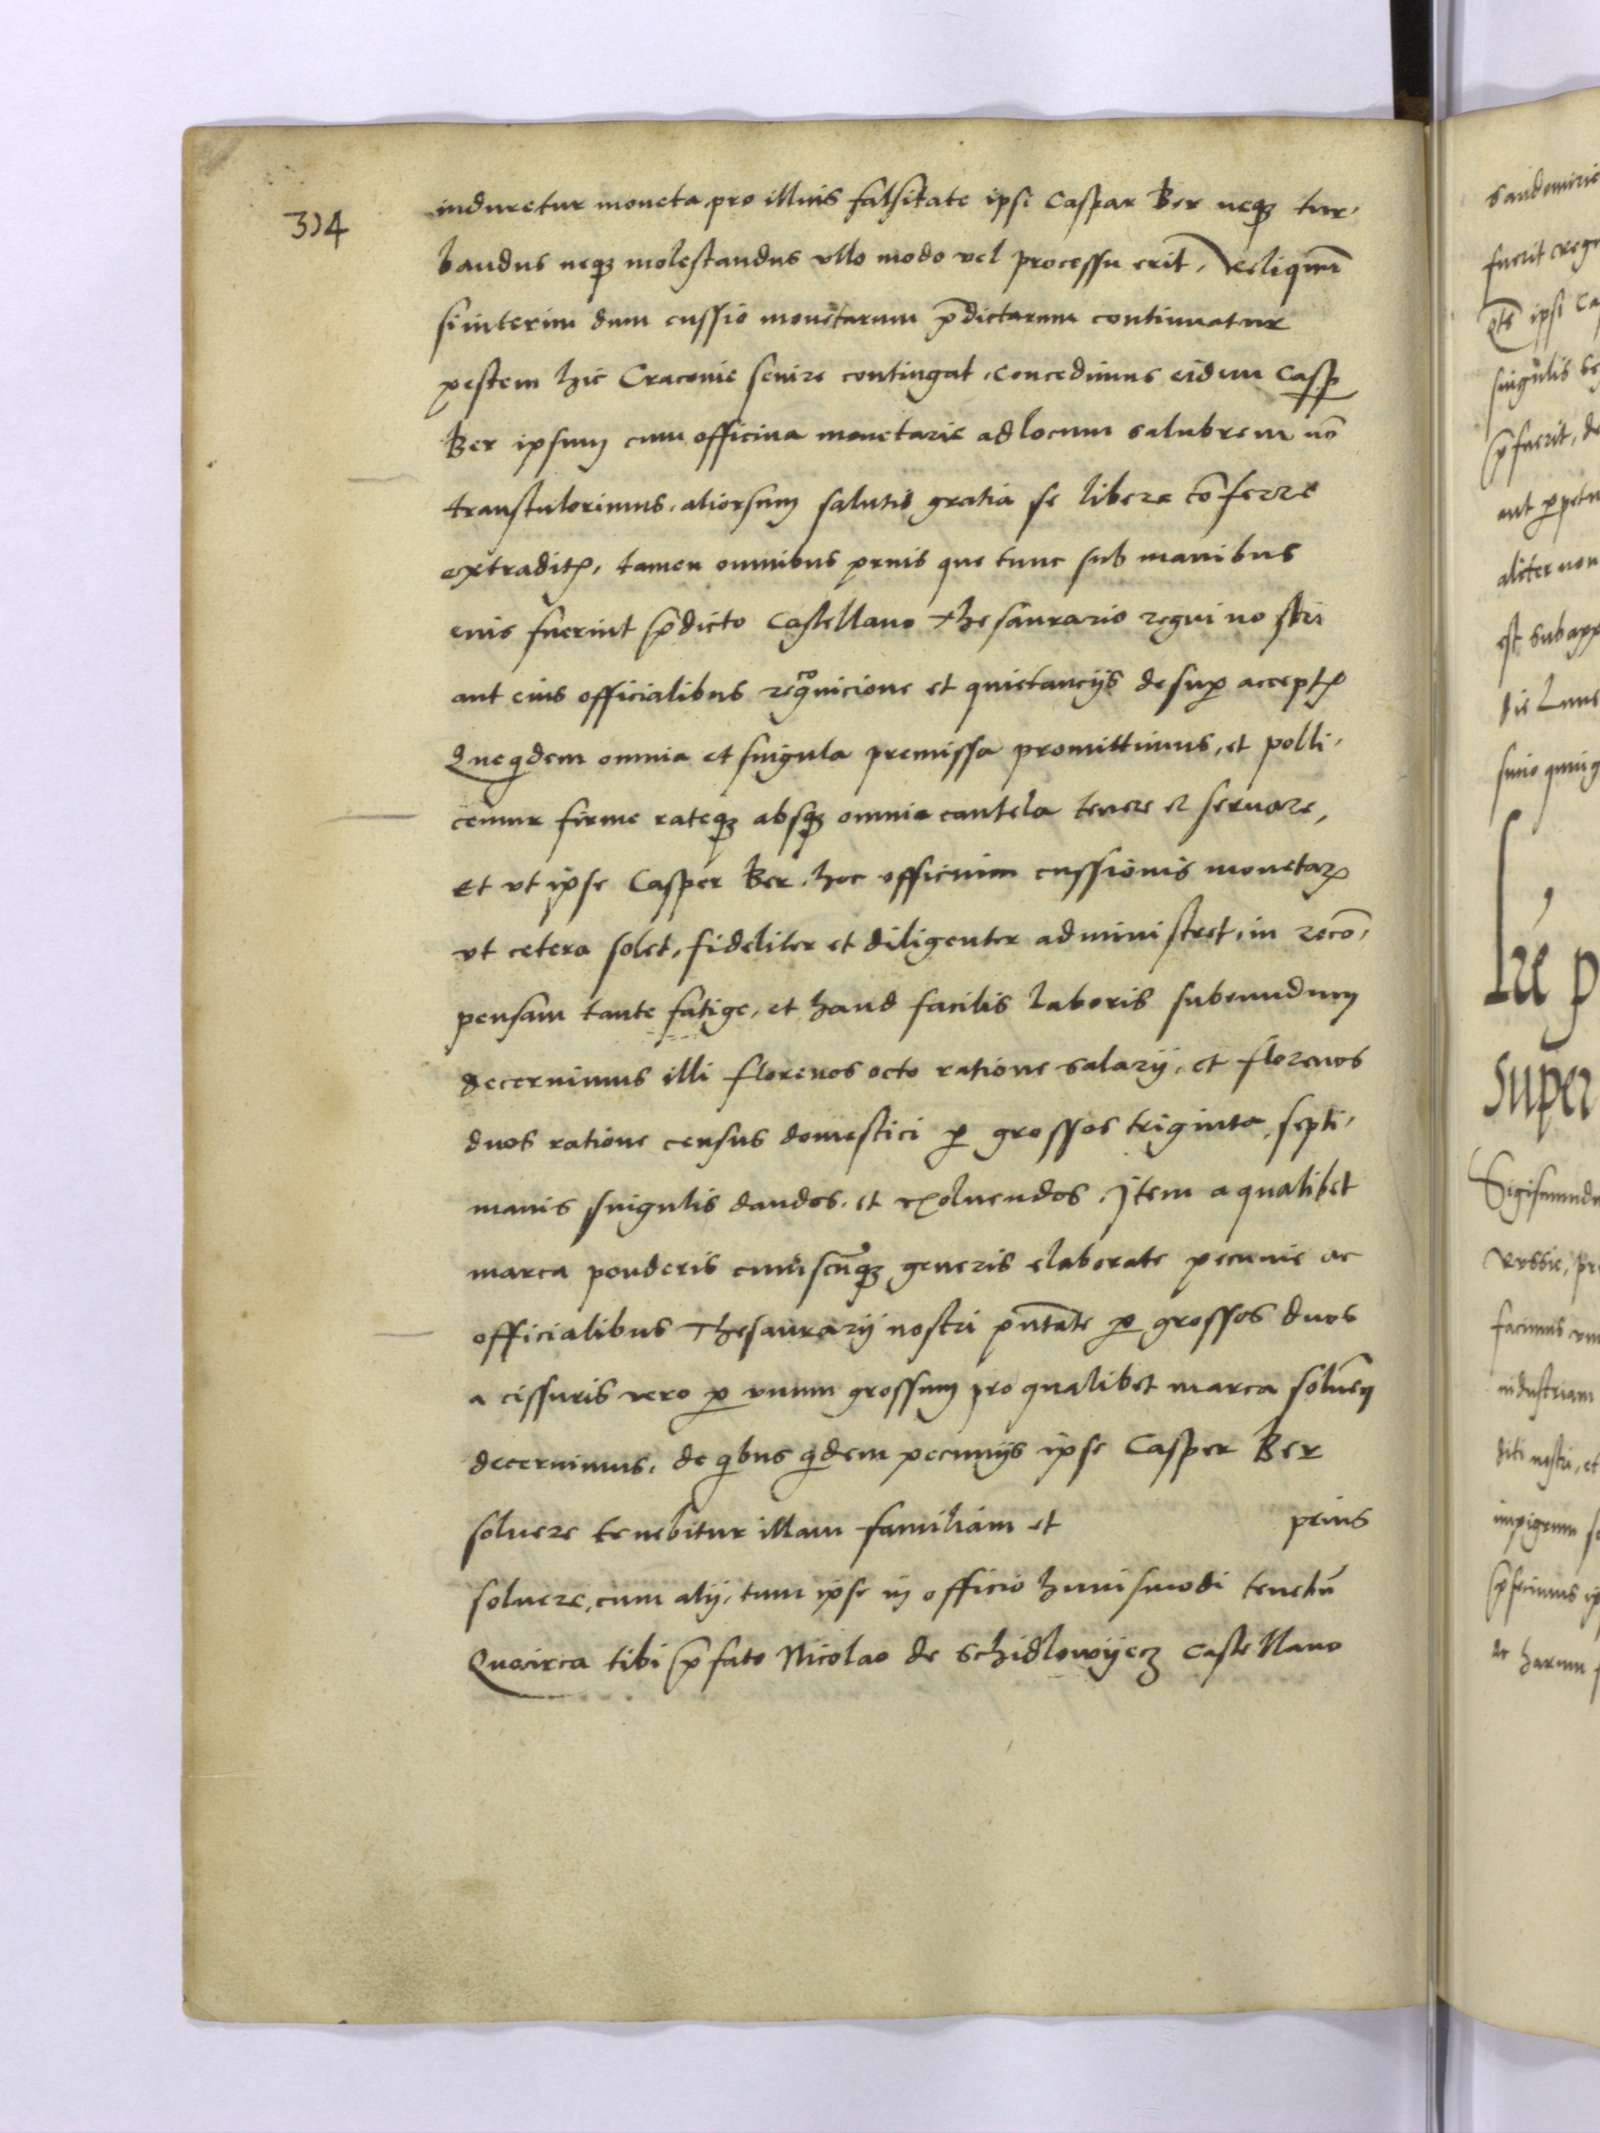 334
induretur moneta, pro illius falsitate ipsi Caspar Ber neqз tur,
bandus neqз molestandus vllo modo vel processu erit, Reliqum̄
si interim dum cussio monetarum p̄dictarum continuatur
pestem hic Cracovie sevire contingat, concedimus eidem Casp̱
Ber ipsum cum officina monetarie ad locum salubrem nō
transtulerimus, aliorsum salutis gratia se libere cōferre
extraditꝭ, tamen omnibus que tunc sub manibus
euis fuerint p̄dicto Castellano Thesaurario regni nostri
aut eius officialibus et quietancijs desuꝑ acceptꝭ
Que qͥdem omnia et singula premissa promittimus, et polli,
cemur firme rateqз absqз omnia cautela tenere et servare,
Et vt ipse Casper Ber, hoc officium cussionis monetaꝝ
vt cetera solet, fideliter et diligenter administret, in recō,
pensam tante fatige, et haud facilis laboris subeundum
decernimus illi florenos octo ratione salarij, et florenos
duos ratione census domestici ꝑ grossos triginta, septi,
manis singulis dandos, et exolvendos, Item a qualibet
marca ponderis cuiuscūqз generis elaborate pecunie ac
officialibus Thesaurarij nostri p̄ntāte ꝑ grossos duos
a cissuris vero ꝑ unum grossum pro qualibet marca
decernimus, de qͥbus qͥdem pecunijs ipse Casper Ber
solvere tenebitur illam familiam et prius
solvere, cum alij, tum ipse in officio huiusmodi
Quocirca tibi p̄fato Nicolao de Schidlowijecz Castellano
Sandomirie
fuerit
ipsi Ca
singulis
p̄fuerit, de
aut ꝑpetu
aliter non
est sub app
die Lune
super
Sigismundu
Russie, pr
facimus
industriam
diti nostri, et
impigrum
de harum